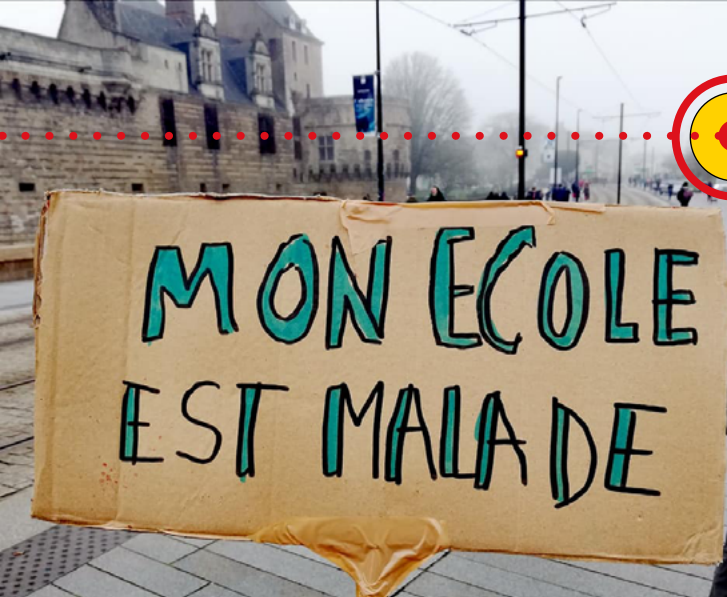 MON ECOLE
EST MALADE